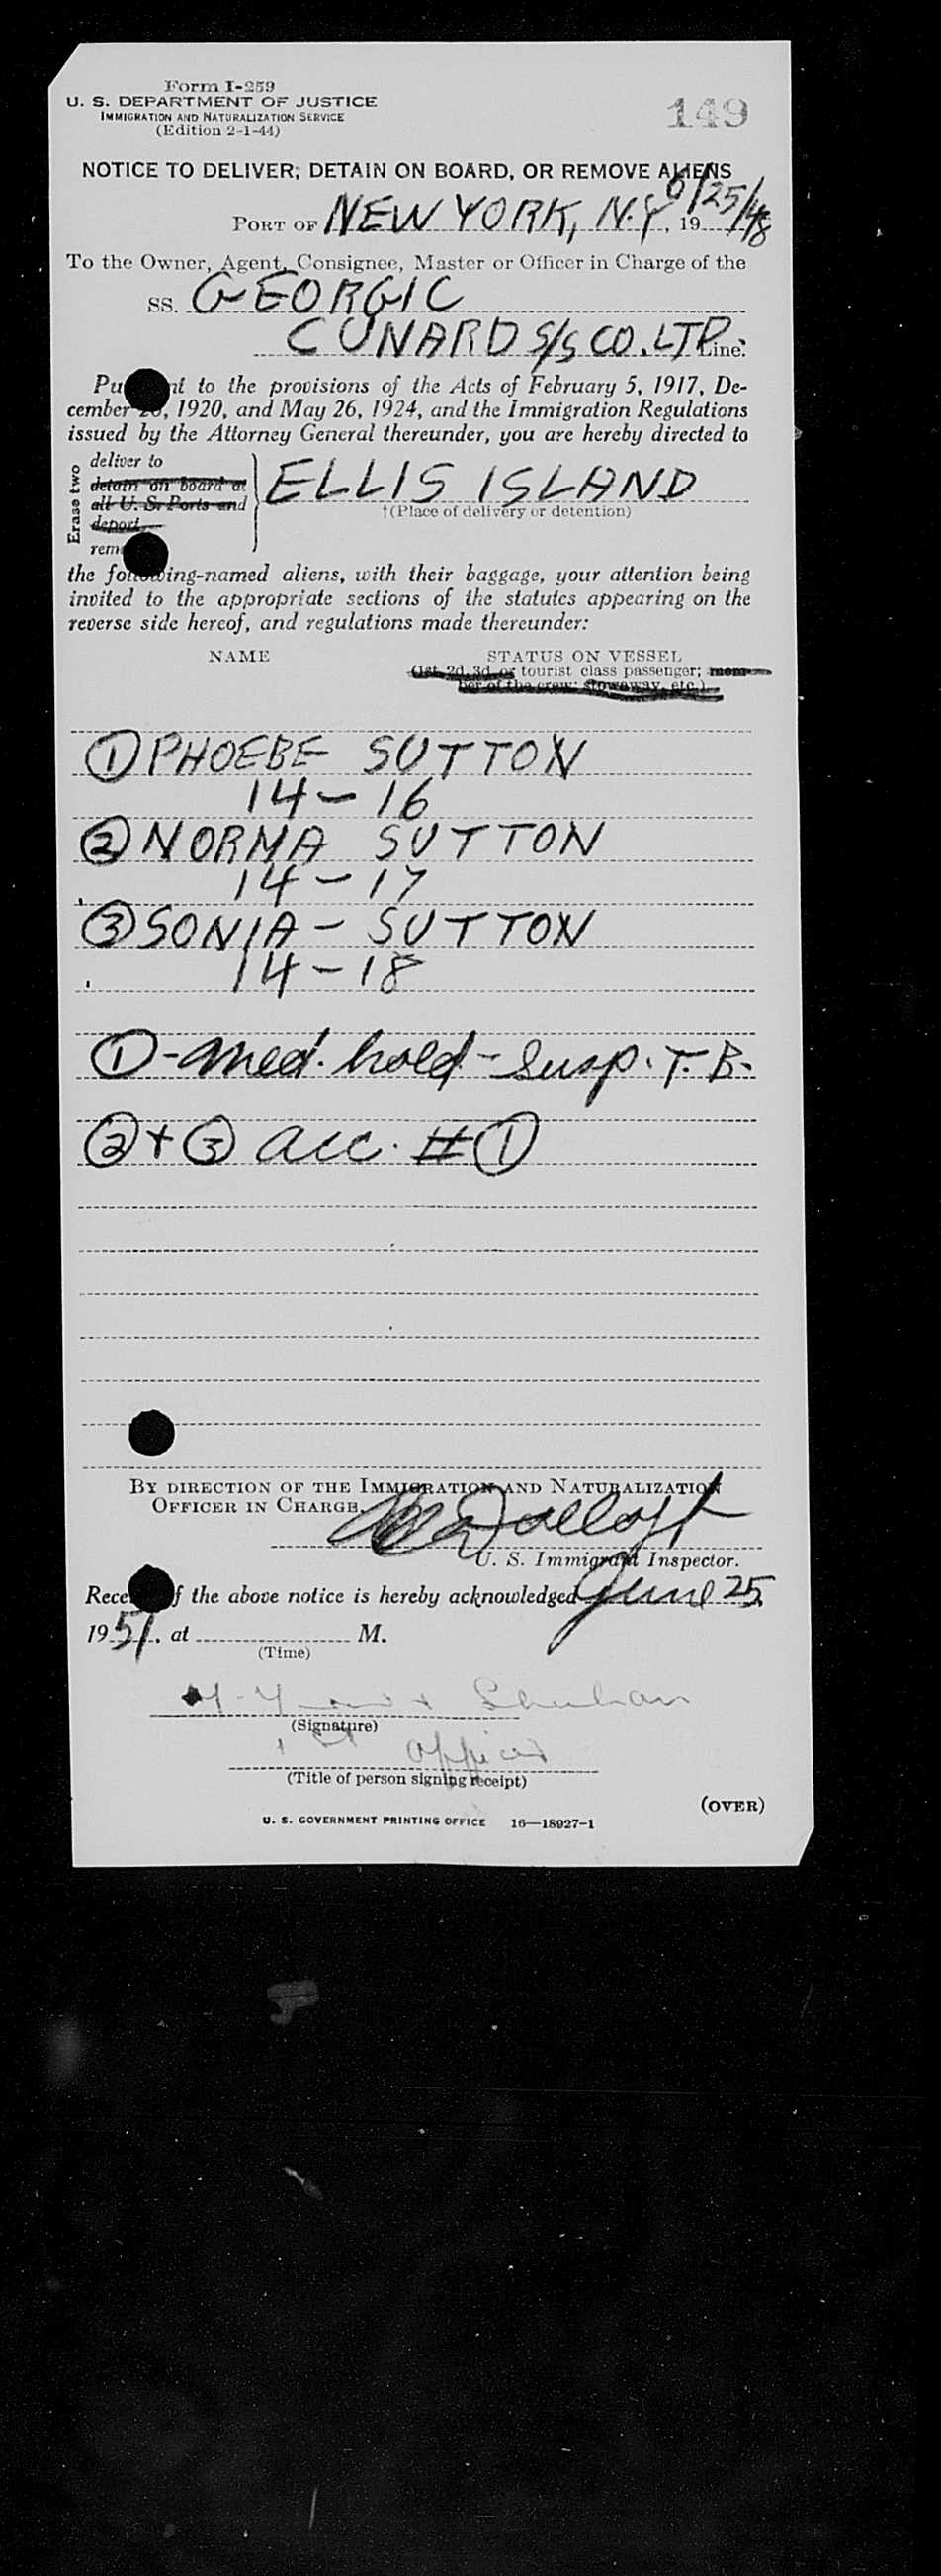 Form I-259
U. S. DEPARTMENT OF JUSTICE
IMMIGRATION AND NATURALIZATION SERVICE
(Edition 2-1-44)
149
NOTICE TO DELIVER; DETAIN ON BOARD, OR REMOVE ALIENS
PORT OF NEW YORK, N.Y, 19 6/25/48
To the Owner, Agent, Consignee, Master or Officer in Charge of the
SS. GEORGIC
CUNARD S/S CO. LTD. Line:
to the provisions of the Acts of February 5, 1917, De-
cember 20, 1920, and May 26, 1924, and the Immigration Regulations
issued by the Attorney General thereunder, you are hereby directed to
Erase two
deliver to
detain on board at
all U. S. Ports and
deport
ELLIS ISLAND
†(Place of delivery or detention)
the following-named aliens, with their baggage, your attention being
invited to the appropriate sections of the statutes appearing on the
reverse side hereof, and regulations made thereunder:
NAME STATUS ON VESSEL
(1st, 2d, 3d, or tourist class passenger; mem-
ber of the crew; stowaway, etc.)
① PHOEBE SUTTON
14-16
② NORMA SUTTON
14-17
③ SONIA - SUTTON
14-18
① - Med. hold - Susp. T. B.
② + ③ acc. # ①
BY DIRECTION OF THE IMMIGRATION AND NATURALIZATION
OFFICER IN CHARGE,
U. S. Immigrant Inspector.
of the above notice is hereby acknowledged June 25,
1951, at M.
(Time)
(Signature)
1st officer
(Title of person signing receipt)
(OVER)
U. S. GOVERNMENT PRINTING OFFICE 16—18927-1